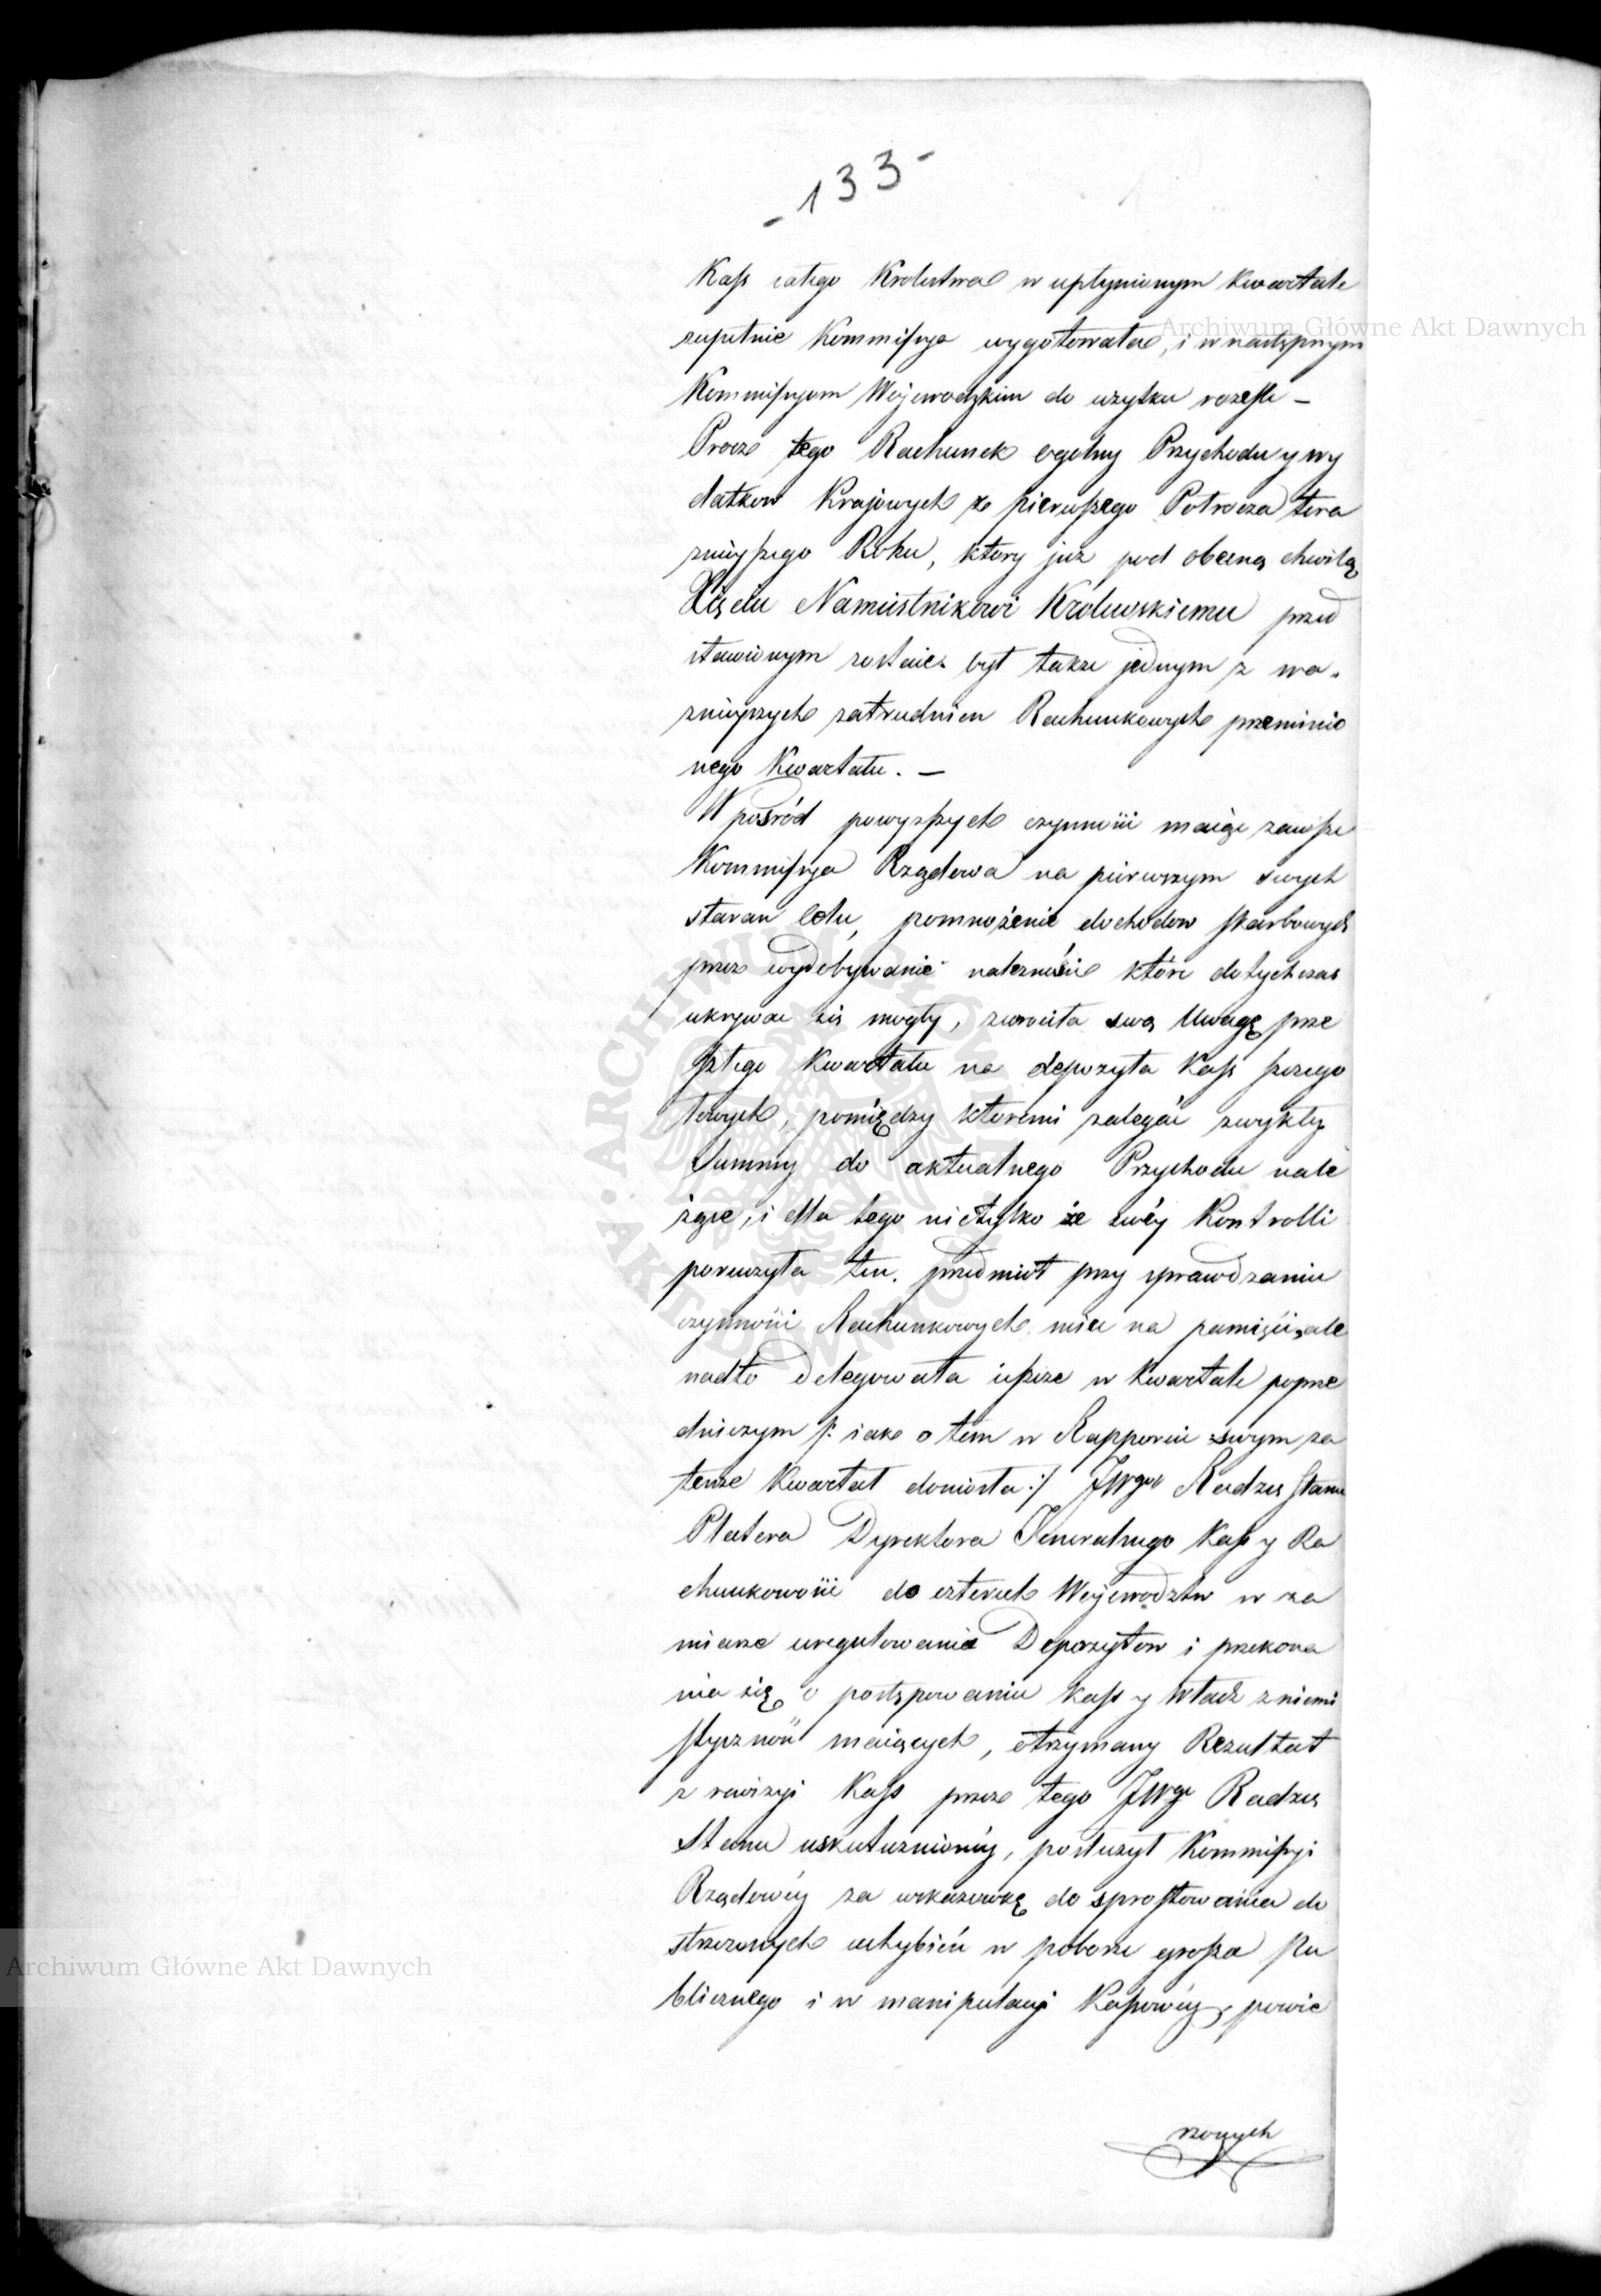 - 133 -
Kass całego Krolestwa w upłynionym kwartale
zupełnie Kommissya wygotowała, i w następnym
Kommissyom Wojewodzkim do uzytku rozesle –
Procz tego Rachunek ogolny Przychodu y wy
datkow Krajowych za pierwszego Połrocza tera
znieyszego Roku, ktory juz pod obecną chwilę
Xięciu Namiestnikowi Królewskiemu przed
stawionym zostaie, był takze jednym z wa-
znieyszych zatrudnien Rachunkowych przeminio
nego Kwartału. –
W pośród powyzszych czynności maiąc zawsze
Kommissya Rządowa na pierwszym swych
staran celu, pomnożenie dochodow skarbowych
przez wydobywanie należności które dotychczas
ukrywac się mogły, zwrociła swą Uwagę prze
szłego Kwartału na depozyta Kass szczego
łowych, pomiędzy ktoremi zalegać zwykły
Summy do aktualnego Przychodu nale
żące, i dla tego nietylko że swéy Kontrolli
poruczyła ten przedmiot przy sprawdzaniu
czynności Rachunkowych miec na pamięci, ale
nadto delegowała ieszcze w Kwartale poprze
dniczym /: iako o tem w Rapporcie swym za
tenze Kwartał doniosła :/ JWgo Radzcę Stanu
Platera Dyrektora Jeneralnego Kass y Ra
chunkowości do czterech Wojewodztw w za
miarze uregulowania Depozytow i przekona
nia się o postępowaniu kass y Władz z niemi
styczność maiących, otrzymany Rezultat
z rewizyi Kass przez tego JWgo Radzcę
Stanu uskutecznionéy, posłuzył Kommissyi
Rządowéy za wskazowkę do sprostowania do
strzezonych uchybień w poborze grosza Pu
blicznego i w manipulacyi Kassowéy, powie
rzonych
Archiwum Główne Akt Dawnych
Archiwum Główne Akt Dawnych
ARCHIWUM GŁÓWNE • AKT DAWNYCH